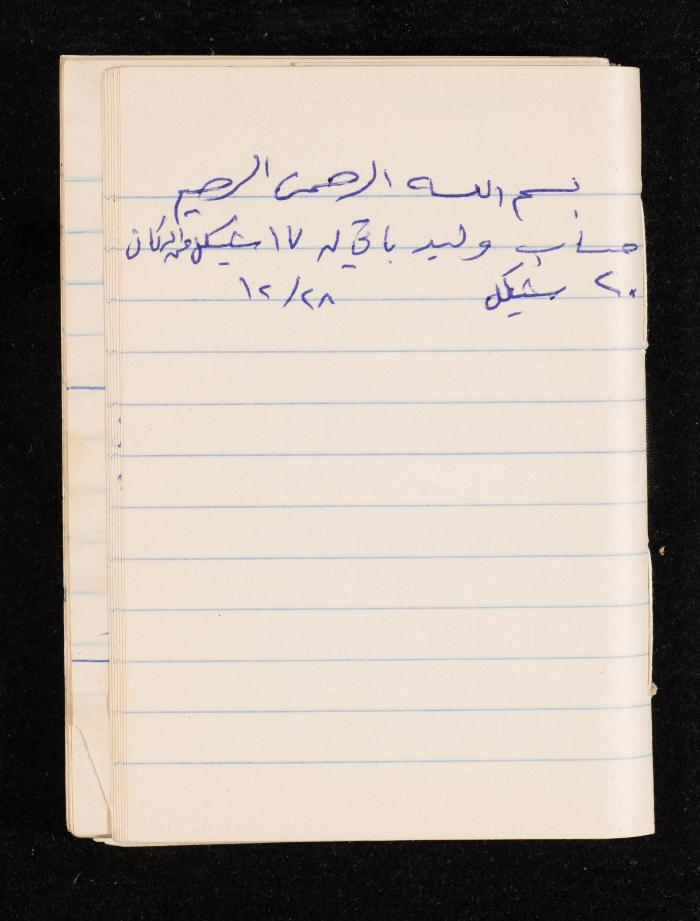 بسم الله الرحمن الرحيم
حساب وليد باقي له ١٧ شيكل من الدكان
٢٠ شيكل ١٢/٢٨